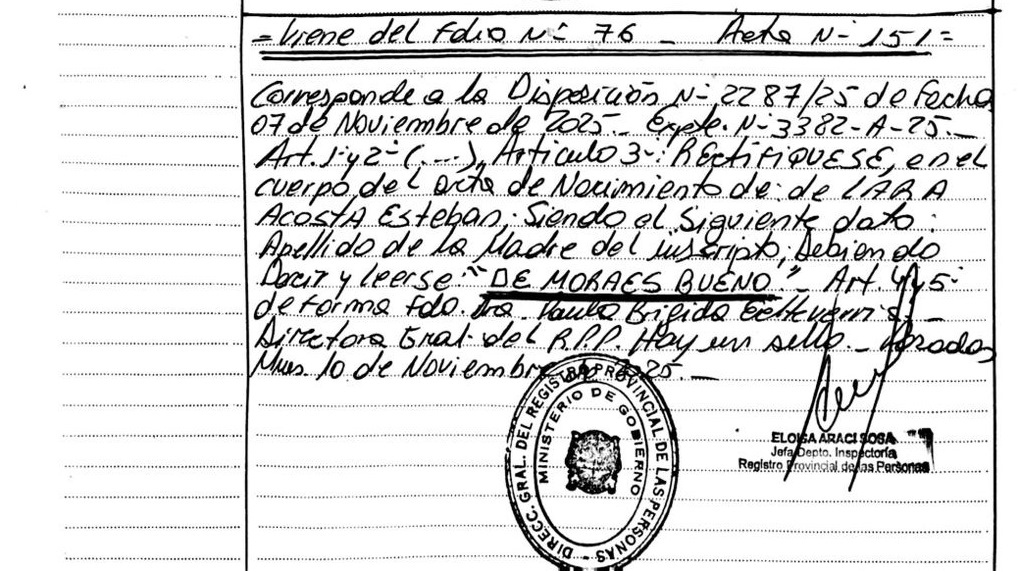 = Viene del Folio N- 76 _ Acta N- 151 =
Corresponde a la Disposición N- 2287/25 de Fecha
07 de Noviembre de 2025._ Expte. N- 3382-A-25._
Art. 1- y 2- (....), Articulo 3-: RECTIFIQUESE, en el
cuerpo del acta de Nacimiento de: de LARA
ACOSTA Esteban; Siendo el Siguiente dato:
Apellido de la Madre del inscripto; Debiendo
Decir y leerse "DE MORAES BUENO". Art. 4 y 5-
de forma Fdo. Dra. Paula Brigida
Directora Gral. del R.P.P. Hay un sello._ Posadas
Mnes. 10 de Noviembre de 2025._
DIRECC. GRAL. DEL REGISTRO PROVINCIAL DE LAS PERSONAS -
MINISTERIO DE GOBIERNO
ELOISA ARACI SOSA
Jefa Depto. Inspectoría
Registro Provincial de las Personas